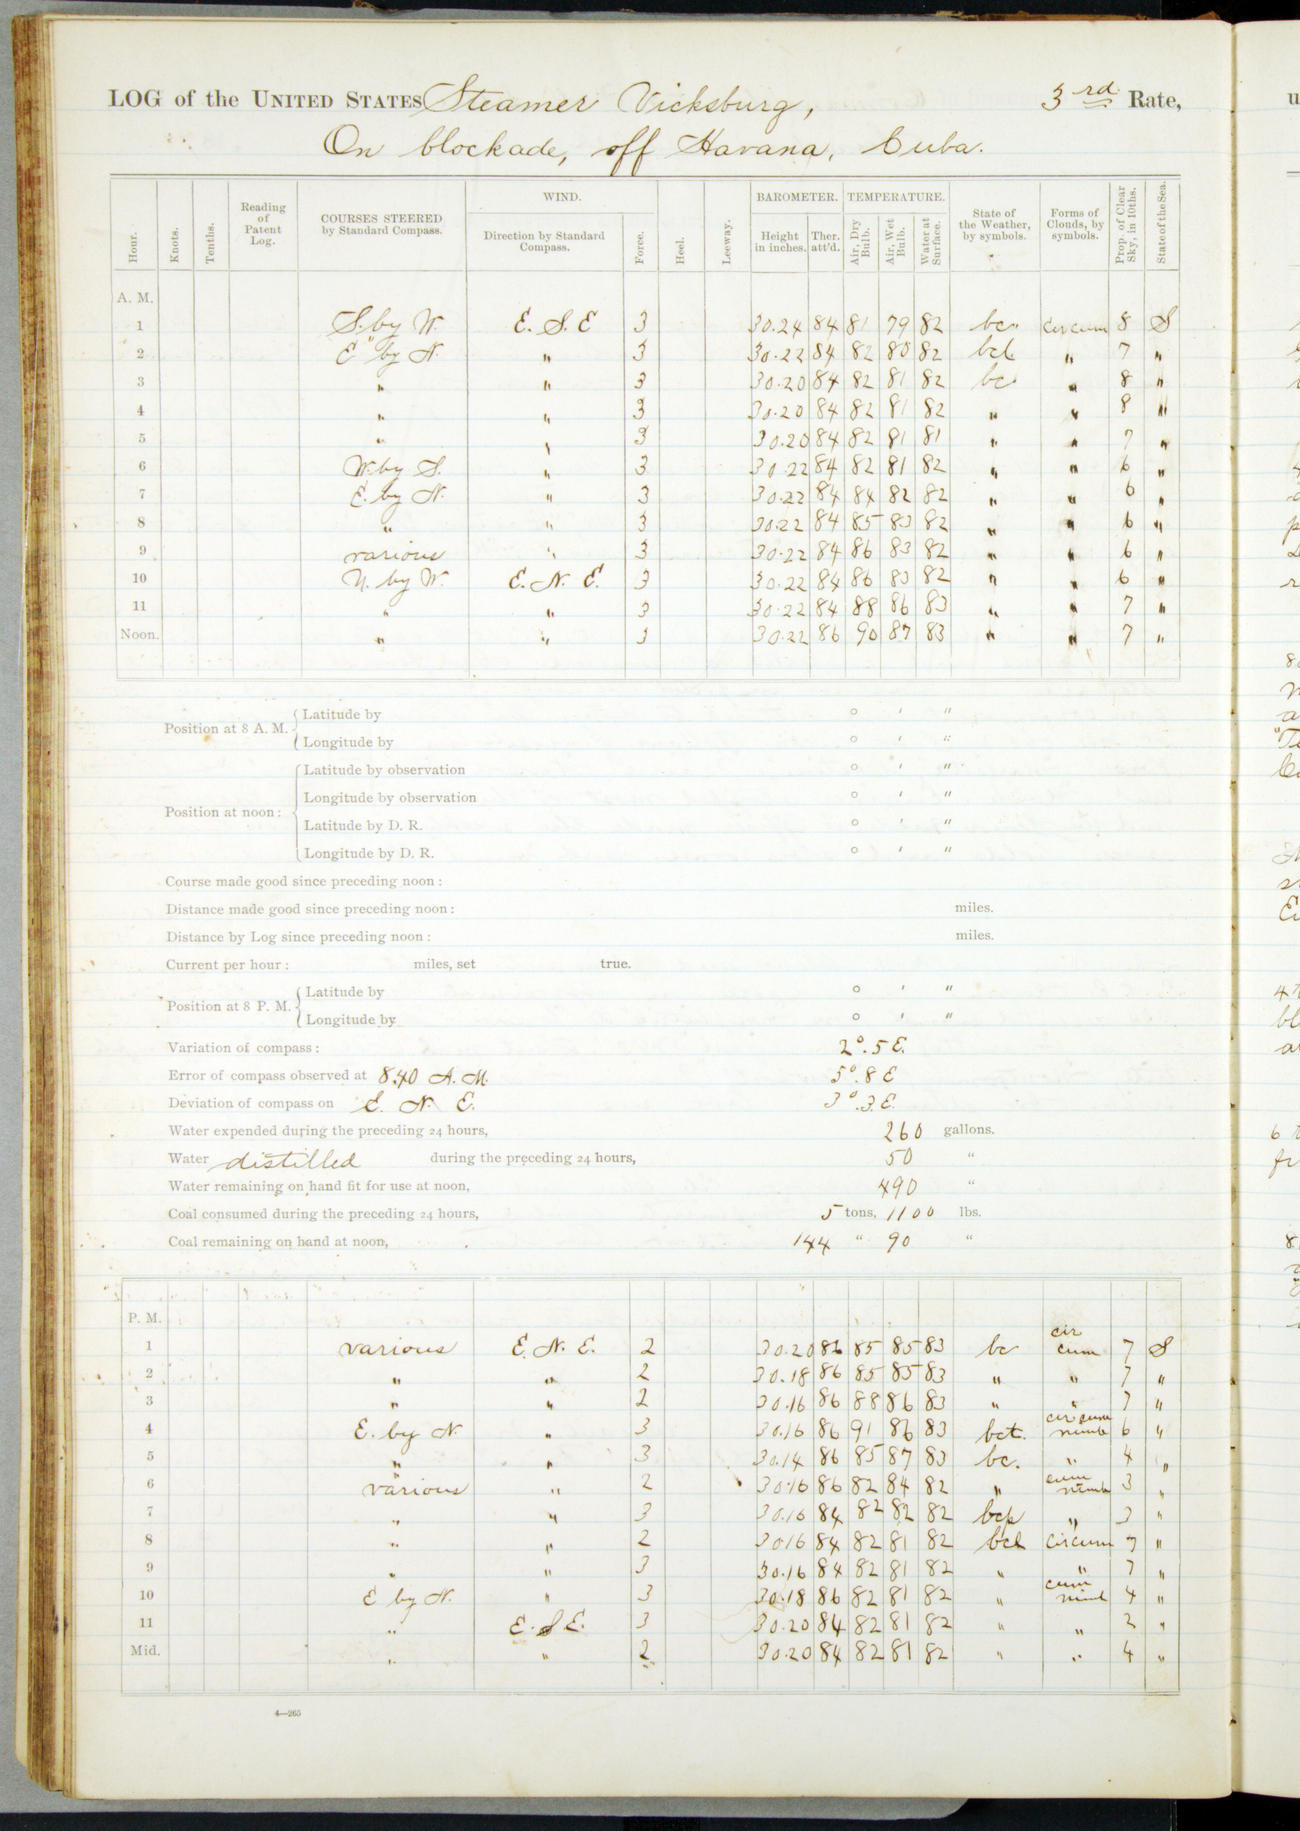 LOG of the UNITED STATES Steamer Vicksburg, 3rd Rate,
On blockade, off Havana, Cuba.
Hour. Knots. Tenths. Reading of Patent Log. COURSES STEERED by Standard Compass. WIND. Direction by Standard Compass. Force. Heel. Leeway. BAROMETER. Height in inches. Ther. att'd. TEMPERATURE. Air, Dry Bulb. Air, Wet Bulb. Water at Surface. State of the Weather, by symbols. Forms of Clouds, by symbols. Prop. of Clear Sky, in 10ths. State of the Sea.
A. M.
1 S. by W. E. S. E 3 30.24 84 81 79 82 bc" cir cum 8 S
2 E by N. " 3 30.22 84 82 80 82 bcl " 7 "
3 " " 3 30.20 84 82 81 82 bc " 8 "
4 " " 3 30.20 84 82 81 82 " " 8 "
5 " " 3 30.20 84 82 81 81 " " 7 "
6 W. by S. " 3 30.22 84 82 81 82 " " 6 "
7 E. by N. " 3 30.22 84 84 82 82 " " 6 "
8 " " 3 30.22 84 85 83 82 " " 6 "
9 various " 3 30.22 84 86 83 82 " " 6 "
10 N. by W. E. N. E. 3 30.22 84 86 83 82 " " 6 "
11 " " 3 30.22 84 88 86 83 " " 7 "
Noon. " " 3 30.22 86 90 87 83 " " 7 "
Position at 8 A. M. Latitude by ° ′ ″
Longitude by ° ′ ″
Position at noon: Latitude by observation ° ′ ″
Longitude by observation ° ′ ″
Latitude by D. R. ° ′ ″
Longitude by D. R. ° ′ ″
Course made good since preceding noon:
Distance made good since preceding noon: miles.
Distance by Log since preceding noon: miles.
Current per hour: miles, set true.
Position at 8 P. M. Latitude by ° ′ ″
Longitude by ° ′ ″
Variation of compass: 2°.5 E.
Error of compass observed at 8.40 A. M. 5°.8 E
Deviation of compass on E. N. E. 3°.3 E.
Water expended during the preceding 24 hours, 260 gallons.
Water distilled during the preceding 24 hours, 50 "
Water remaining on hand fit for use at noon, 490 "
Coal consumed during the preceding 24 hours, 5 tons, 1100 lbs.
Coal remaining on hand at noon, 144 " 90 "
P. M.
1 various E. N. E. 2 30.20 86 85 85 83 bc cir cum 7 S
2 " " 2 30.18 86 85 85 83 " " 7 "
3 " " 2 30.16 86 88 86 83 " " 7 "
4 E. by N. " 3 30.16 86 91 86 83 bct. cir cum nimb 6 "
5 " " 3 30.14 86 85 87 83 bc. " 4 "
6 various " 2 30.16 86 82 84 82 " cum nimb 3 "
7 " " 3 30.16 84 82 82 82 bcp " 3 "
8 " " 2 30.16 84 82 81 82 bcl cir cum 7 "
9 " " 3 30.16 84 82 81 82 " " 7 "
10 E by N. " 3 30.18 86 82 81 82 " cum nimb 4 "
11 " E. S E. 3 30.20 84 82 81 82 " " 2 "
Mid. " " 2 30.20 84 82 81 82 " " 4 "
4—265